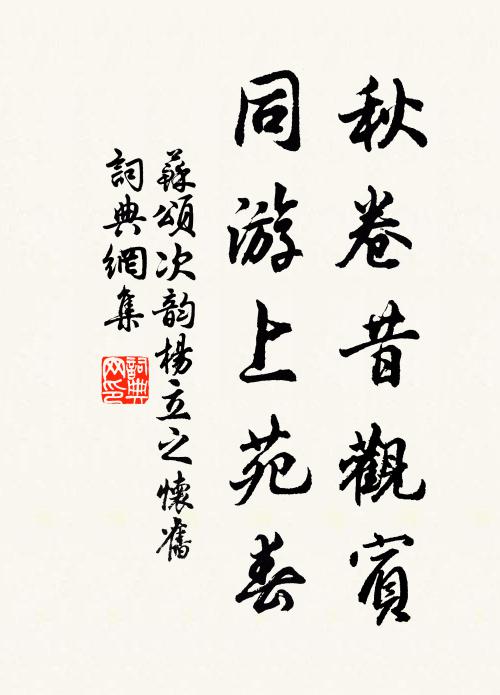 秋卷昔觀賓
同游上苑春
蘇頌次韵楊立之懷舊
詞典網集
詞典网印